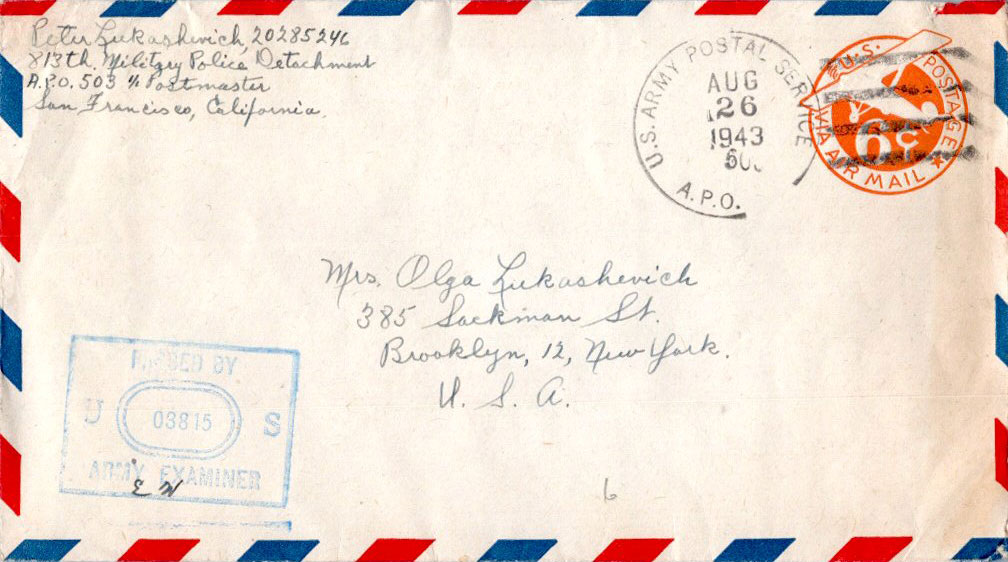 Peter Lukashevich, 20285246
813th. Military Police Detachment
A.P.O. 503 % Postmaster
San Francisco, California.
U.S. ARMY POSTAL SERVICE
AUG
26
1943
A.P.O.
U.S. POSTAGE
VIA AIR MAIL
6¢
Mrs. Olga Lukashevich
385 Sackman St.
Brooklyn, 12, New York.
U. S. A.
PASSED BY
U 03815 S
ARMY EXAMINER
E W
6